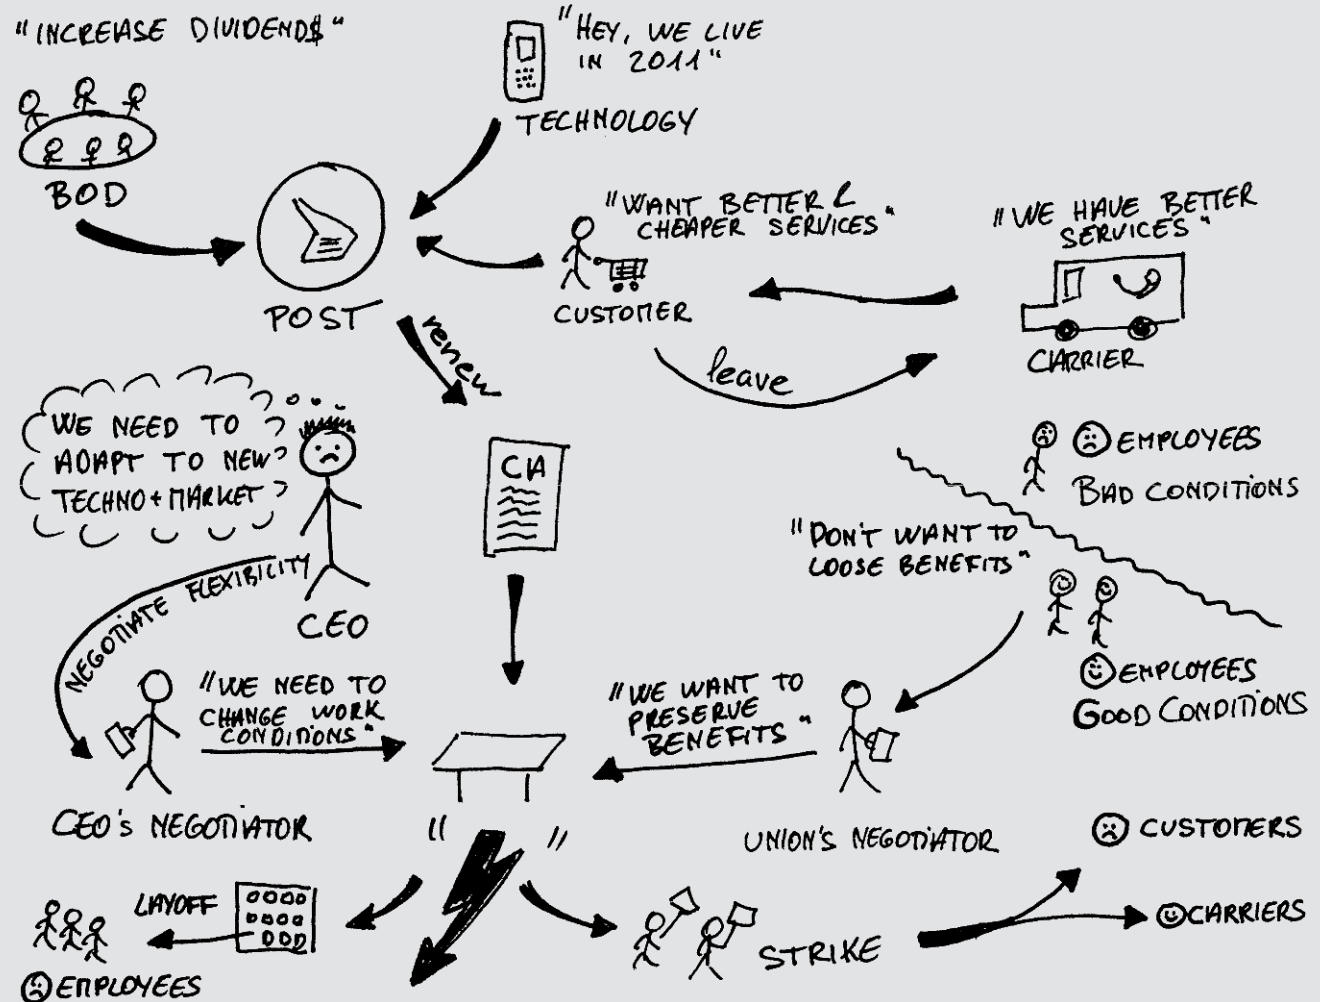 "INCREASE DIVIDEND$"
BOD
"HEY, WE LIVE
IN 2011"
TECHNOLOGY
POST
"WANT BETTER &
CHEAPER SERVICES"
CUSTOMER
"WE HAVE BETTER
SERVICES"
CARRIER
renew
leave
WE NEED TO
ADAPT TO NEW
TECHNO + MARKET
CEO
NEGOTIATE FLEXIBILITY
CA
EMPLOYEES
BAD CONDITIONS
"DON'T WANT TO
LOOSE BENEFITS"
EMPLOYEES
GOOD CONDITIONS
"WE NEED TO
CHANGE WORK
CONDITIONS"
CEO'S NEGOTIATOR
"WE WANT TO
PRESERVE
BENEFITS"
UNION'S NEGOTIATOR
" "
LAYOFF
EMPLOYEES
STRIKE
CUSTOMERS
CARRIERS